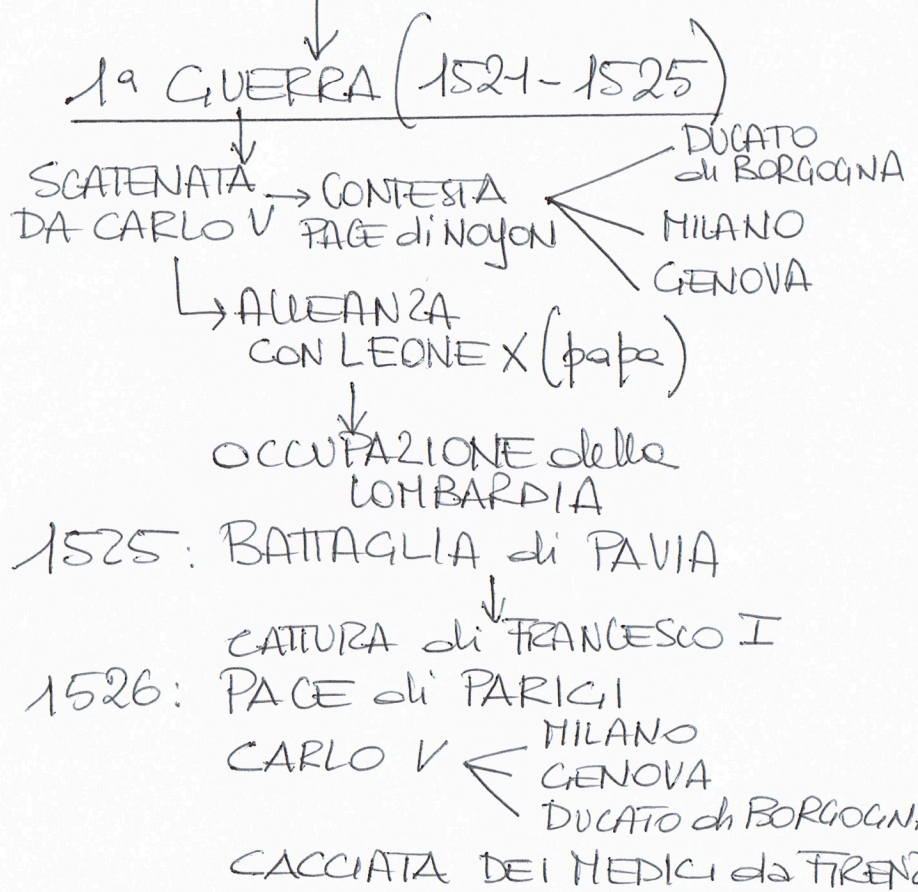 1ª GUERRA (1521-1525)
SCATENATA
DA CARLO V
→ CONTESTA
PACE di NOYON
DUCATO
di BORGOGNA
MILANO
GENOVA
ALLEANZA
CON LEONE X (papa)
OCCUPAZIONE della
LOMBARDIA
1525: BATTAGLIA di PAVIA
CATTURA di FRANCESCO I
1526: PACE di PARIGI
CARLO V
MILANO
GENOVA
DUCATO di BORGOGNA
CACCIATA DEI MEDICI da FIRENZ